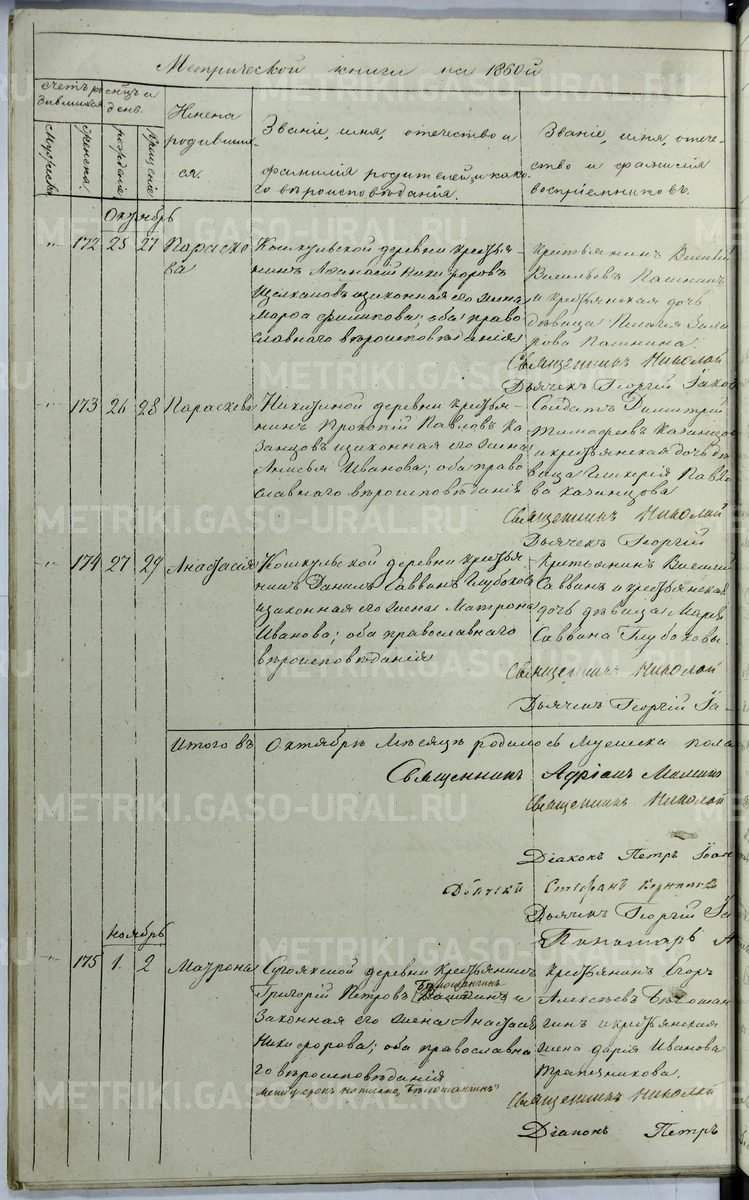 Метрической книги на 1860й
счетъ ро
дившихся
мѣсяцъ и
день
Имена
родивших
ся.
Званіе, имя, отечество и
фамилія родителей, и како
го вѣроисповѣданія.
Званіе, имя, отече-
ство и фамилія
воспріемниковъ.
мужеска
женска
рожденія
крещенія
Октябрь
" 172 25 27
Параске
ва
Кошкульской деревни крестья-
нинъ Аѳанасій Никифоровъ
и законная его жена
Марѳа Филипова; оба право
славнаго вѣроисповѣданія
Крестьянинъ Василій
Васильевъ Пашнинъ
и крестьянская дочь
дѣвица Пелагія Заха
рова Пашнина.
Священникъ Николай
Дьячекъ Георгій Іаков
" 173 26 28
Параскева
Никитиной деревни крестья-
нинъ Прокопій Павловъ Ка
занцовъ и законная его жена
Ивановa; оба право
славнаго вѣроисповѣданія
Солдатъ Димитрій
Тимофеевъ Казанцов
и крестьянская дочь дѣ
вица Гликерія Павло
ва Казанцова
Священникъ Николай
Дьячекъ Георгій
" 174 27 29
Анастасія
Кошкульской деревни крестья
нинъ Данилъ Саввинъ Глубоков
и законная его жена Матрона
Иванова; оба православнаго
вѣроисповѣданія
Крестьянинъ Василій
Саввинъ и крестьянская
дочь дѣвица Марія
Саввина Глубоковы
Священникъ Николай
Дьячекъ Георгій Іа-
Итого въ Октябрѣ Мѣсяцѣ родилось Мужеска пола
Священникъ Адріанъ
Священникъ Николай
Діаконъ Петръ Іоан
Дьячки Стефанъ
Дьячекъ Георгій Іа
Пономарь А
Ноябрь
" 175 1. 2
Матрона
Сугоякской деревни крестьянинъ
Бѣлошангинъ
Григорій Петровъ и
Законная его жена Анастасія
Никифорова; оба православна
го вѣроисповѣданія
Между срокъ написано, Бѣлошангинъ"
Крестьянинъ Егоръ
Алексѣевъ Бѣлошан
гинъ и крестьянская
жена Дарія Иванова
Трапезникова.
Священникъ Николай
Діаконъ Петръ
METRIKI.GASO-URAL.RU